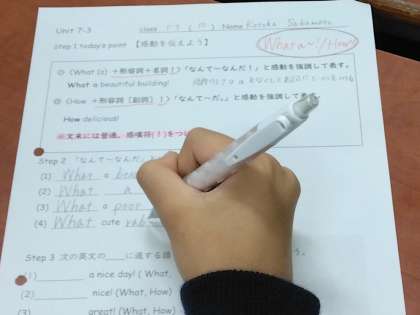 Unit 7-3 class Name
Step 1 today's point 【感動を伝えよう】 What a~!/How
① 〈What (a) +形容詞+名詞!〉「なんて~なんだ!」と感動を強調して表す。
What a beautiful building!
② 〈How +形容詞 [副詞]!〉「なんて~だ。」と感動を強調して表す。
How delicious!
※文末には普通、感嘆符(!)をつ
Step 2 「なんて~なんだ」
(1) What a
(2) What a
(3) What a poor
(4) What cute
Step 3 次の英文の に適する語
(1) a nice day! (What,
(2) nice! (What, How)
great! (What, How)